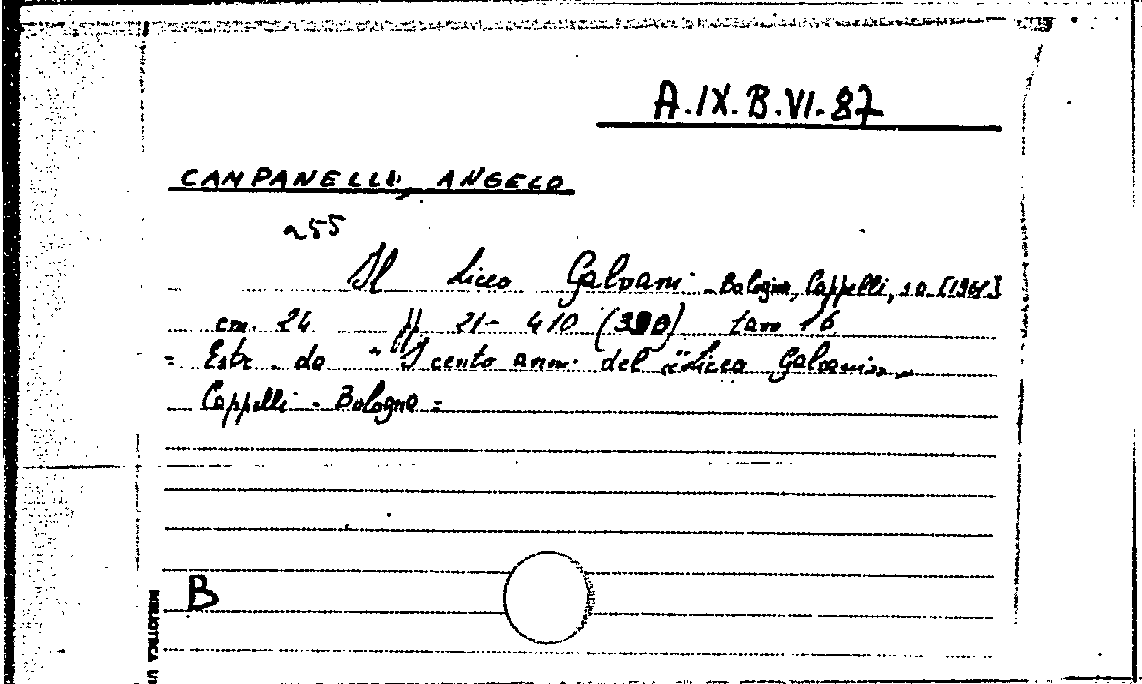 A.IX.B.VI.87
CAMPANELLI, ANGELO
Il Liceo Galvani - Bologna, Cappelli, s.a. [1961]
cm. 24 pp. 21- 410 (390) tav 16
= Estr. da "I cento anni del "Liceo Galvani"" -
Cappelli - Bologna =
B
BIBLIOTECA